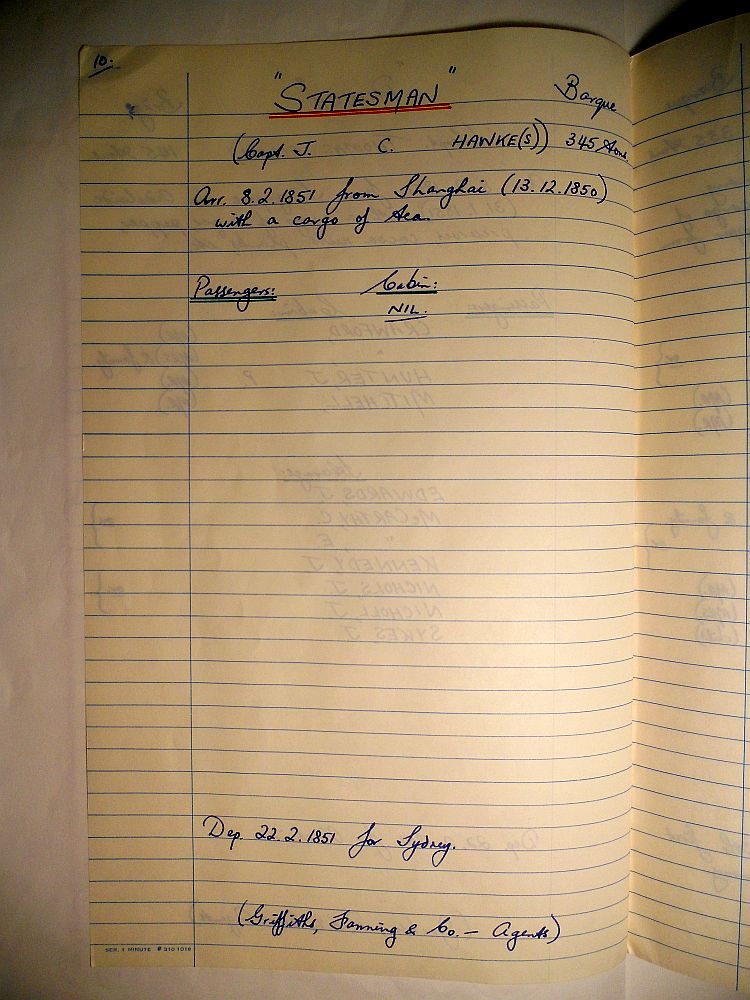 10.
"STATESMAN" Barque
(Capt. J. C. HAWKE(S)) 345 tons
Arr. 8.2.1851 from Shanghai (13.12.1850)
with a cargo of tea.
Passengers: Cabin:
NIL.
Dep. 22.2.1851 for Sydney.
(Griffiths, Fanning & Co. — Agents)
SER. 1 MINUTE # 310 1018